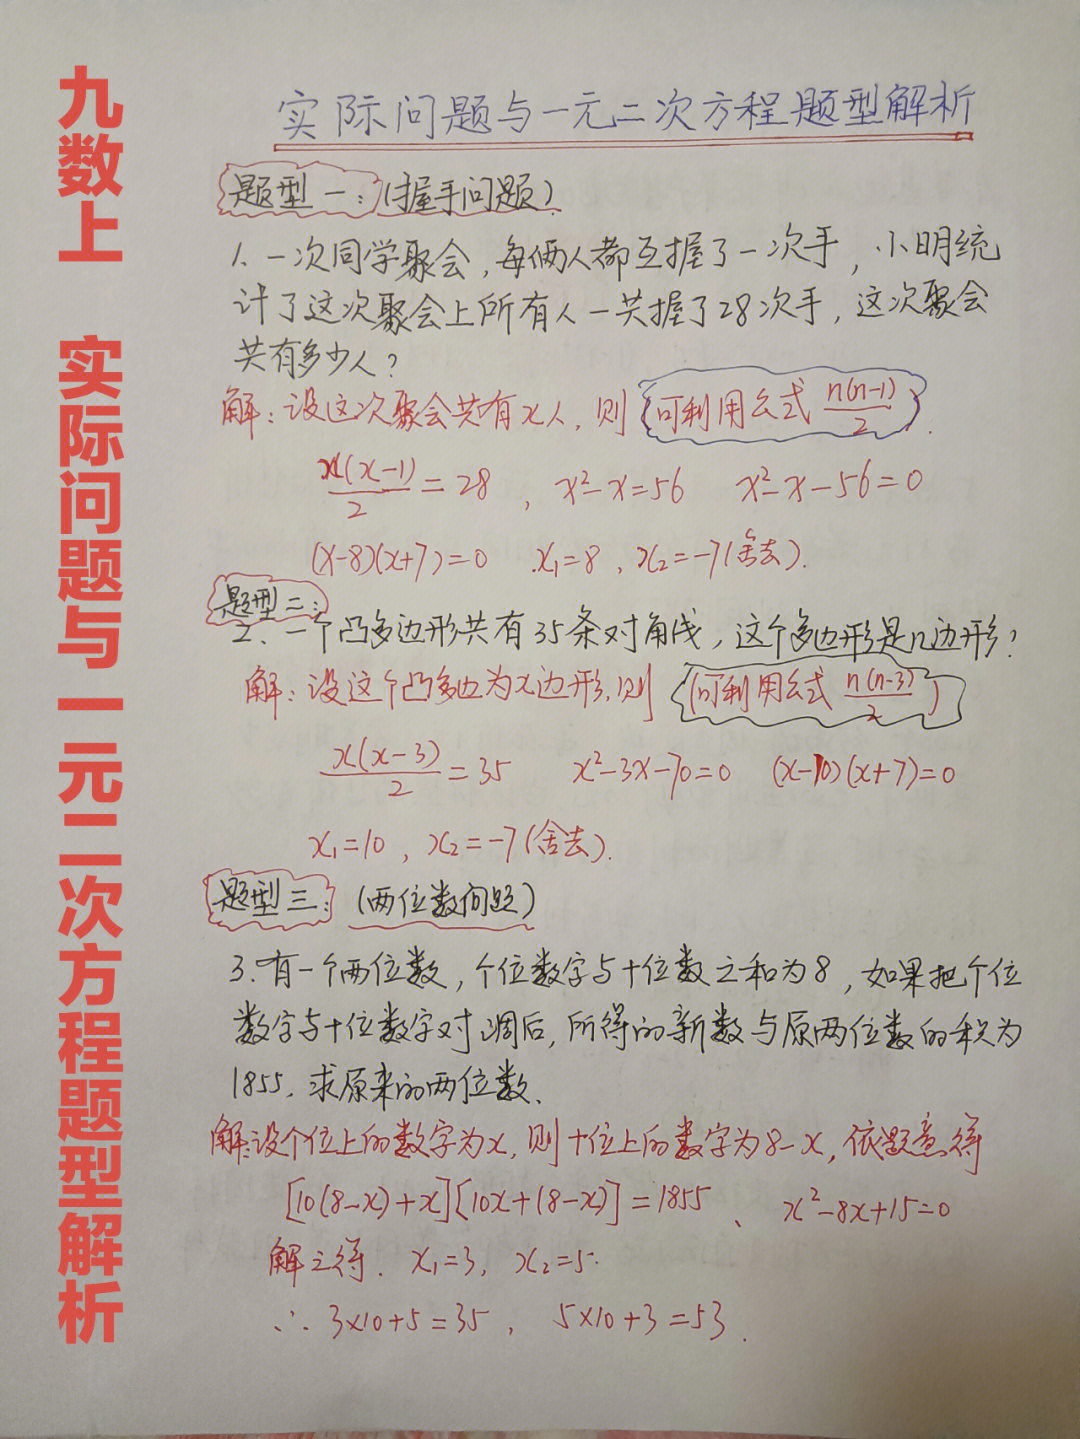 九数上 实际问题与一元二次方程题型解析
实际问题与一元二次方程题型解析
题型一：(握手问题)
1、一次同学聚会，每俩人都互握了一次手，小明统
计了这次聚会上所有人一共握了28次手，这次聚会
共有多少人？
解：设这次聚会共有x人，则(可利用公式 n(n-1)/2).
x(x-1)/2=28，x²-x=56 x²-x-56=0
(x-8)(x+7)=0 x₁=8，x₂=-7(舍去).
题型二：
2、一个凸多边形共有35条对角线，这个多边形是几边形？
解：设这个凸多边为x边形，则(可利用公式 n(n-3)/2)
x(x-3)/2=35 x²-3x-70=0 (x-10)(x+7)=0
x₁=10，x₂=-7(舍去).
题型三：(两位数问题)
3.有一个两位数，个位数字与十位数之和为8，如果把个位
数字与十位数字对调后，所得的新数与原两位数的积为
1855，求原来的两位数、
解：设个位上的数字为x，则十位上的数字为8-x，依题意得
[10(8-x)+x][10x+(8-x)]=1855、x²-8x+15=0
解之得．x₁=3，x₂=5.
∴3×10+5=35，5×10+3=53．